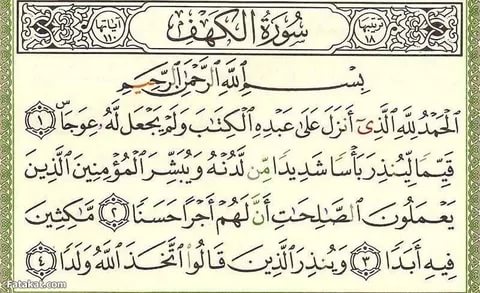 ترتيبها ١٨ سُورَةُ الْكَهْفِ آياتها ١١٠
بِسْمِ اللَّهِ الرَّحْمَٰنِ الرَّحِيمِ
الْحَمْدُ لِلَّهِ الَّذِي أَنزَلَ عَلَىٰ عَبْدِهِ الْكِتَابَ وَلَمْ يَجْعَل لَّهُ عِوَجًا ۜ ﴿١﴾
قَيِّمًا لِّيُنذِرَ بَأْسًا شَدِيدًا مِّن لَّدُنْهُ وَيُبَشِّرَ الْمُؤْمِنِينَ الَّذِينَ
يَعْمَلُونَ الصَّالِحَاتِ أَنَّ لَهُمْ أَجْرًا حَسَنًا ﴿٢﴾ مَّاكِثِينَ
فِيهِ أَبَدًا ﴿٣﴾ وَيُنذِرَ الَّذِينَ قَالُوا اتَّخَذَ اللَّهُ وَلَدًا ﴿٤﴾
Fatakat.com